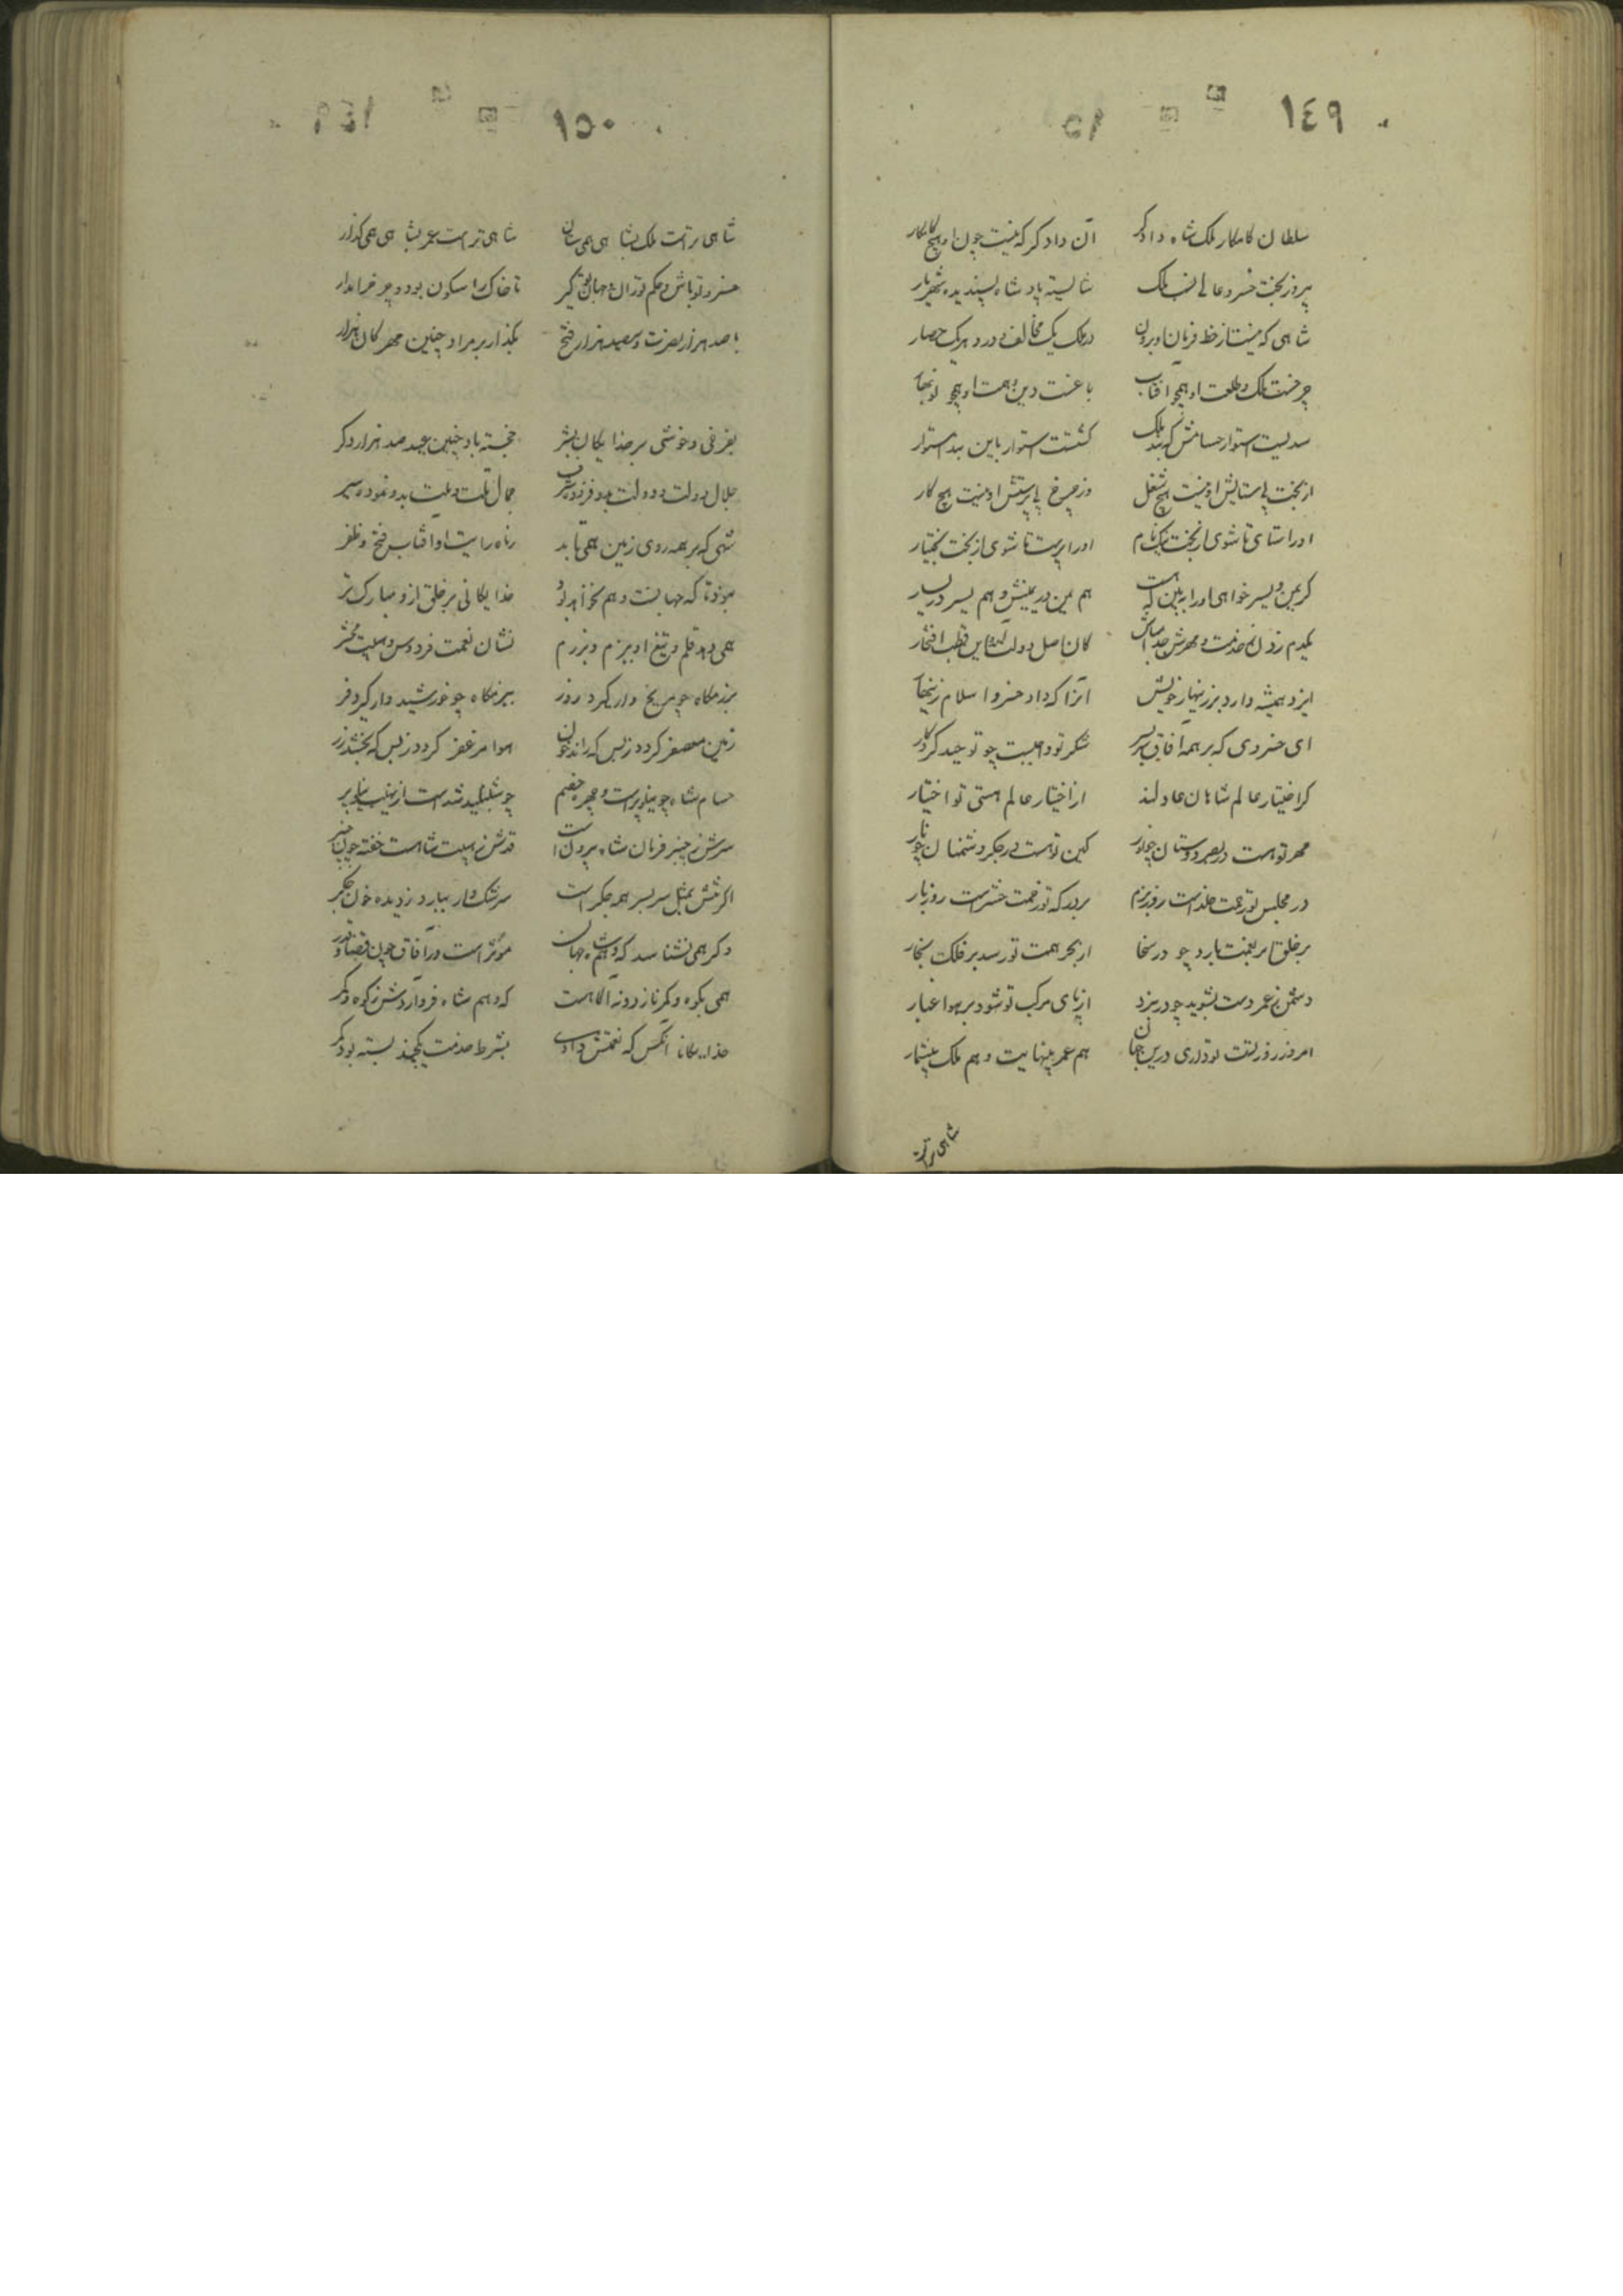 ١٤٩
سلطان کامکار ملک شاه دادکر آن دادکر که نیست چون او هیچ کامکار
پیروز بخت خسرو عالی نسب ملک شایسته پادشاه پسندیده شهریار
شاهی که نیست از خط فرمان او برون در ملک یک مخالف و در دهر یک حصار
چرخست ملک و طلعت او همچو آفتاب باغست دین و همت او همچو نوبهار
سدیست استوار حسامش که بند ملک کشتست استوار باین سد استوار
از بخت بی ستایش او نیست هیچ شغل وز چرخ بی پرستش او نیست هیچ کار
او را ستای تا شوی از بخت نیکنام او را پرست تا شوی از بخت بختیار
کر یمن و یسر خواهی او را ببین که هست هم یمن در یمینش و هم یسر در یسار
یکدم زدن ز خدمت و مهرش جدا مباش کان اصل دولت آمد و این قطب افتخار
ایزد همیشه دارد در زینهار خویش آنرا که داد خسرو اسلام زینهار
ای خسروی که بر همه آفاق سربسر شکر تو واجبست چو توحید کردکار
کر اختیار عالم شاهان عادلند از اختیار عالم هستی تو اختیار
مهر تو هست در بصر دوستان چو نور کین تو هست در جکر دشمنان چو نار
در مجلس تو جنت خلد است روز بزم بر درکه تو زحمت حشر است روز بار
بر خلق ابر نعمت بارد چو در سخا از بحر همت تو رسد بر فلک بخار
دشمن ز عمر دست بشوید چو در نبرد از پای مرکب تو شود بر هوا غبار
امروز روز تست تو داری درین جهان هم عمر بینهایت و هم ملک بیشمار
شاهی تراست
١٥٠
شاهی تراست ملک بشاهی همی ستان شاهی تراست عمر بشاهی همی کذار
خسرو تو باش و حکم تو ران و جهان تو کیر تا خاک را سکون بود و چرخ را مدار
با صد هزار نصرت و سیصد هزار فتح بکذار بر مراد چنین مهرکان هزار
بفرخی و خوشی بر خدایکان بشر خجسته باد چنین عید صد هزار دکر
جلال دولت و دولت بدو فزوده شرف جمال ملت و ملت بدو نموده سیر
شهی که بر همه روی زمین همی تابد ز ماه رایت او آفتاب فتح و ظفر
نبود تا که جهانست و هم نخواهد بود خدایکانی بر خلق ازو مبارک تر
همی دهد قلم و تیغ او ببزم و برزم نشان نعمت فردوس و هیبت محشر
برزمکاه چو مریخ وار کیرد روز ببزمکاه چو خورشید وار کیرد فر
زمین معصفر کردد ز بس که راند خون هوا مزعفر کردد ز بس که بخشد زر
حسام شاه چو نیلوفر است و چهره خصم چو شنبلید شد است از نهیب نیلوفر
سرش ز چنبر فرمان شاه بیرون است قدش ز هیبت شاهست خفته چون چنبر
اکر تنش بمثل سر بسر همه جکر است سرشک وار ببارد ز دیده خون جکر
وکر همی نشناسد که وهم شاه جهان مؤثر است در آفاق چون قضا و قدر
همی بکوه و کمر نازد و نه آکاهست که وهم شاه فرو آردش ز کوه و کمر
خدایکانا آنکس که نعمتش دادی بشرط خدمت یکچند بسته بود کمر